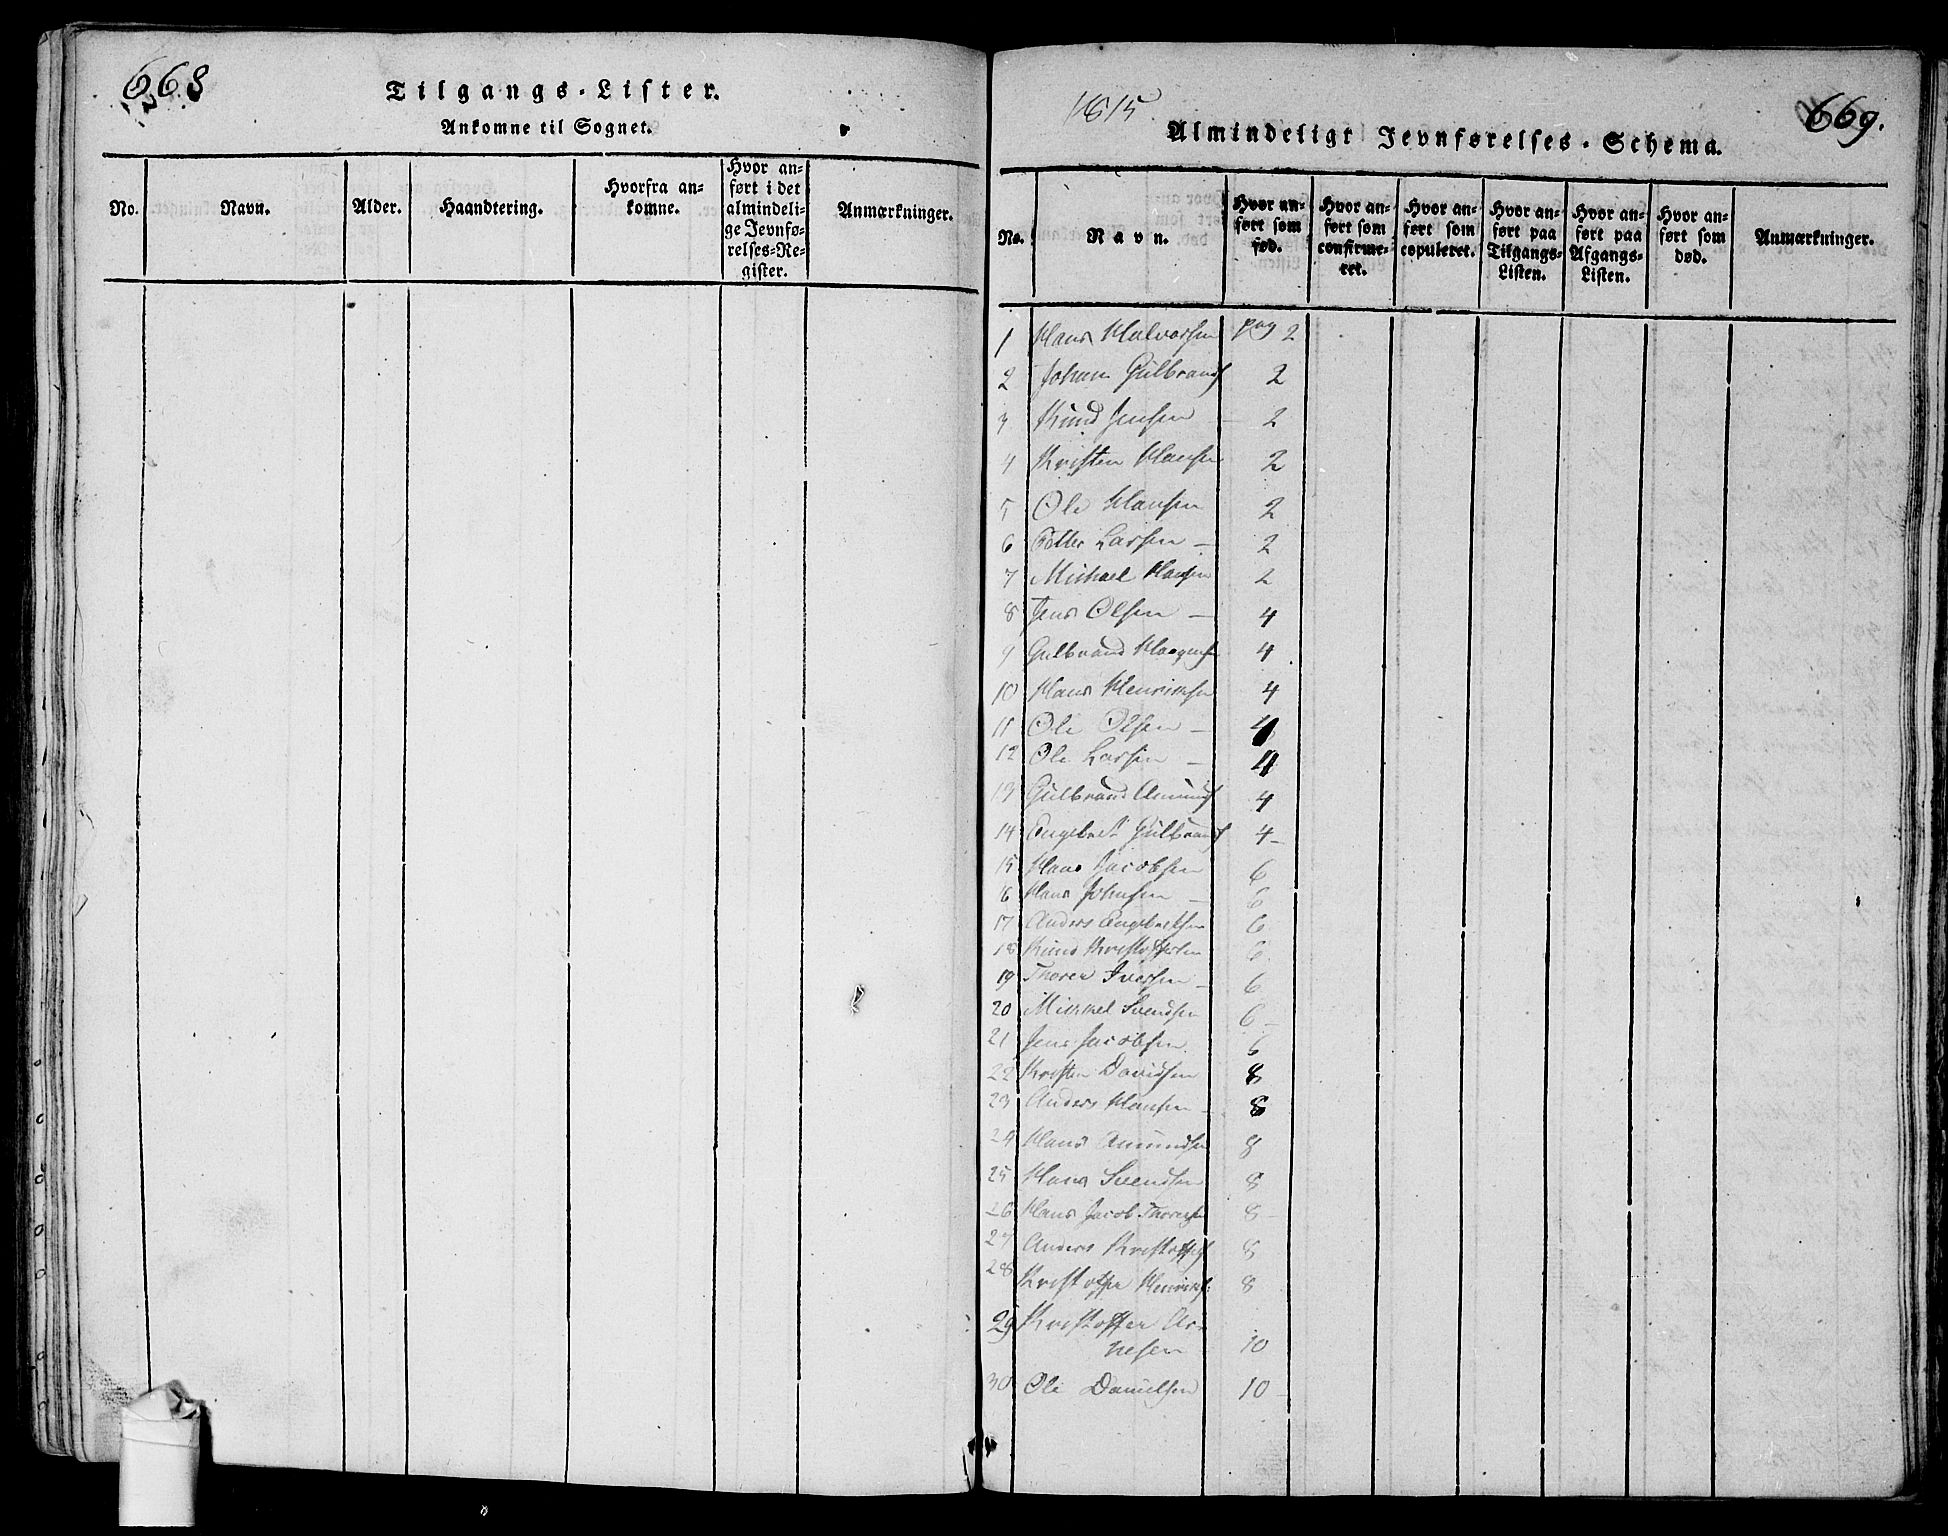 668
Tilgangs-Lister.
Ankomne til Sognet.
No.
Navn.
Alder.
Haandtering.
Hvorfra an-
komne.
Hvor an-
ført i det
almindeli-
ge Jevnfø-
relses-Re-
gister.
Anmærkninger.
1815
669.
Almindeligt Jevnførelses-Schema.
No.
Navn.
Hvor an-
ført som
fød.
Hvor an-
ført som
confirme-
ret.
Hvor an-
ført som
copuleret.
Hvor an-
ført paa
Tilgangs-
Listen.
Hvor an-
ført paa
Afgangs-
Listen.
Hvor an-
ført som
død.
Anmærkninger.
1 Hans Halvorsen pag 2
2 Johan Gulbrands 2
3 Knud Jensen — 2
4 Kristen Hansen 2
5 Ole Hansen 2
6 Petter Larsen — 2
7 Michael Hansen 2
8 Jens Olsen — 4
9 Gulbrand Haagens 4
10 Hans Henriksen 4
11 Ole Olsen — 4
12 Ole Larsen — 4
13 Gulbrand Amunds 4
14 Engebret Gulbrands 4-
15 Hans Jacobsen 6
16 Hans Johnsen — 6
17 Anders Engebretsen 6
18 Knud Kristoffersen 6
19 Thorer Iversen — 6
20 Mikkel Svendsen 6-
21 Jens Jacobsen 6
22 Kristen Davidsen 8
23 Anders Hansen — 8
24 Hans Amundsen 8
25 Hans Svendsen 8
26 Hans Jacob Thoresen 8-
27 Anders Kristoffers 8
28 Kristoffer Henriks 8
29 Kristoffer Ar-
nesen 10
30 Ole Danielsen 10-